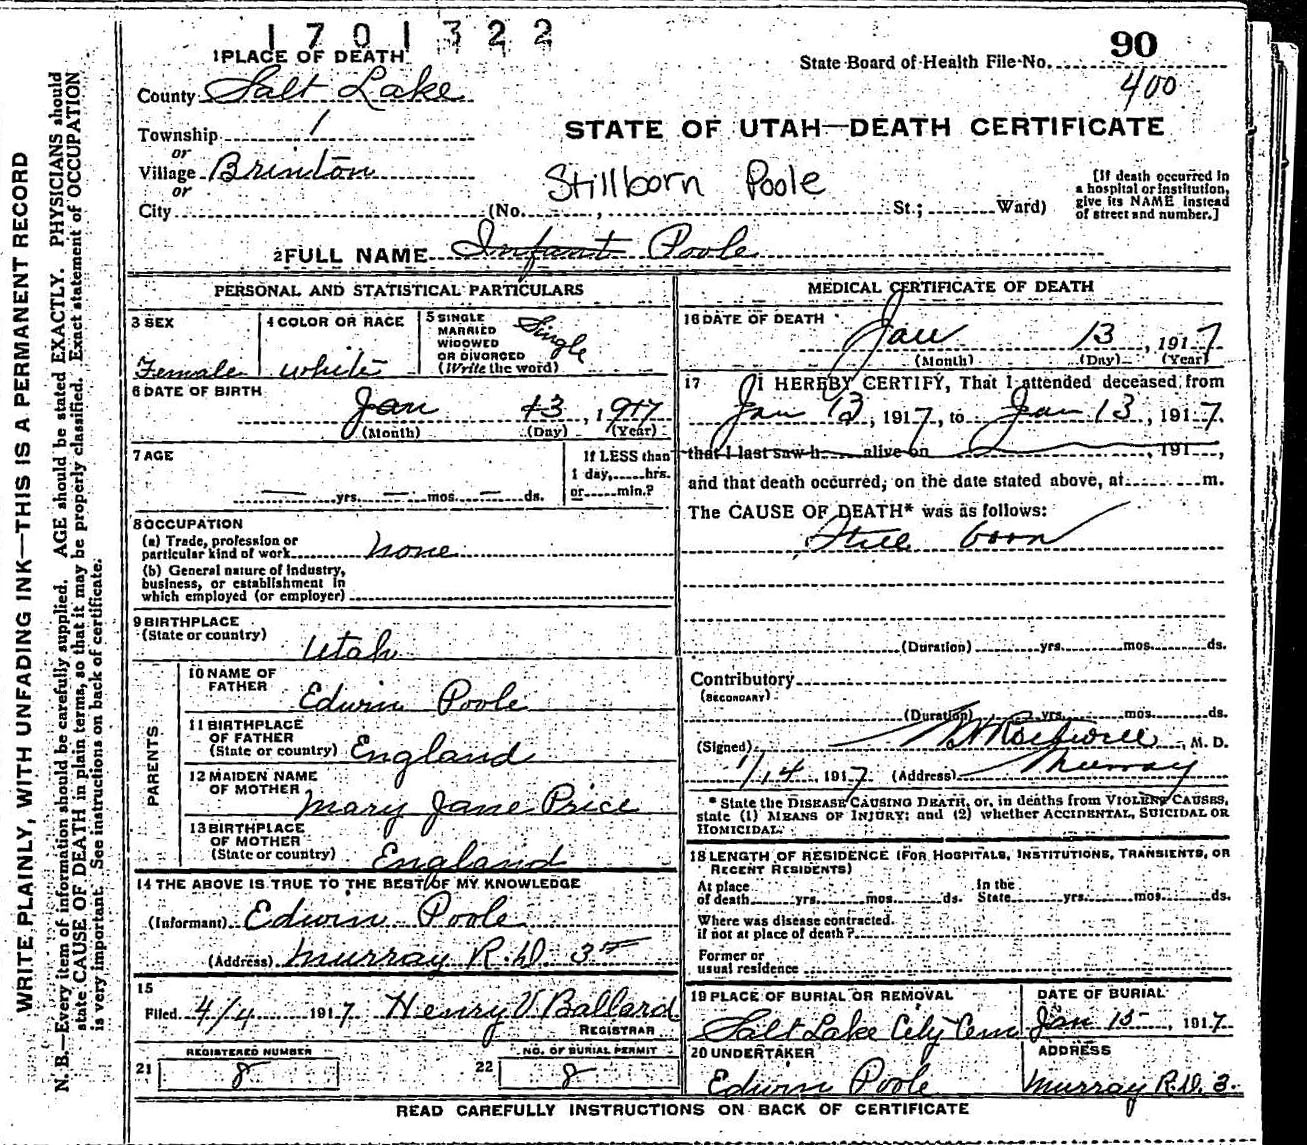 1 7 0 1 3 2 2
90
1 PLACE OF DEATH
State Board of Health File No.
400
County Salt Lake
STATE OF UTAH—DEATH CERTIFICATE
Township 1
or
Village Brinton
or
Stillborn Poole
[If death occurred in
a hospital or institution,
give its NAME instead
of street and number.]
City (No. , St.; Ward)
2 FULL NAME Infant Poole
PERSONAL AND STATISTICAL PARTICULARS
3 SEX
Female
4 COLOR OR RACE
white
5 SINGLE
MARRIED
WIDOWED
OR DIVORCED
(Write the word)
Single
6 DATE OF BIRTH
Jan 13, 1917
(Month) (Day) (Year)
7 AGE
— yrs. — mos. — ds.
If LESS than
1 day, hrs.
or min.?
8 OCCUPATION
(a) Trade, profession or
particular kind of work none
(b) General nature of industry,
business, or establishment in
which employed (or employer)
9 BIRTHPLACE
(State or country)
Utah
PARENTS
10 NAME OF
FATHER
Edwin Poole
11 BIRTHPLACE
OF FATHER
(State or country) England
12 MAIDEN NAME
OF MOTHER
Mary Jane Price
13 BIRTHPLACE
OF MOTHER
(State or country)
England
14 THE ABOVE IS TRUE TO THE BEST OF MY KNOWLEDGE
(Informant) Edwin Poole
(Address) Murray R.D. 3
15
Filed 4/4 1917 Henry V. Ballard
REGISTRAR
REGISTERED NUMBER
21 8
NO. OF BURIAL PERMIT
22 8
MEDICAL CERTIFICATE OF DEATH
16 DATE OF DEATH
Jan 13, 1917
(Month) (Day) (Year)
17 I HEREBY CERTIFY, That I attended deceased from
Jan 13, 1917, to Jan 13, 1917.
that I last saw h alive on , 191 ,
and that death occurred, on the date stated above, at m.
The CAUSE OF DEATH* was as follows:
Still born
(Duration) yrs. mos. ds.
Contributory
(SECONDARY)
(Duration) yrs. mos. ds.
(Signed) , M. D.
1/14 1917 (Address) Murray
* State the DISEASE CAUSING DEATH, or, in deaths from VIOLENT CAUSES,
state (1) MEANS OF INJURY; and (2) whether ACCIDENTAL, SUICIDAL OR
HOMICIDAL.
18 LENGTH OF RESIDENCE (FOR HOSPITALS, INSTITUTIONS, TRANSIENTS, OR
RECENT RESIDENTS)
At place
of death yrs. mos. ds.
In the
State yrs. mos. ds.
Where was disease contracted.
if not at place of death?
Former or
usual residence
19 PLACE OF BURIAL OR REMOVAL
Salt Lake City Cem
DATE OF BURIAL
Jan 15, 1917
20 UNDERTAKER
Edwin Poole
ADDRESS
Murray R.D. 3.
READ CAREFULLY INSTRUCTIONS ON BACK OF CERTIFICATE
WRITE PLAINLY, WITH UNFADING INK—THIS IS A PERMANENT RECORD
N. B.—Every item of information should be carefully supplied. AGE should be stated EXACTLY. PHYSICIANS should
state CAUSE OF DEATH in plain terms, so that it may be properly classified. Exact statement of OCCUPATION
is very important. See instructions on back of certificate.